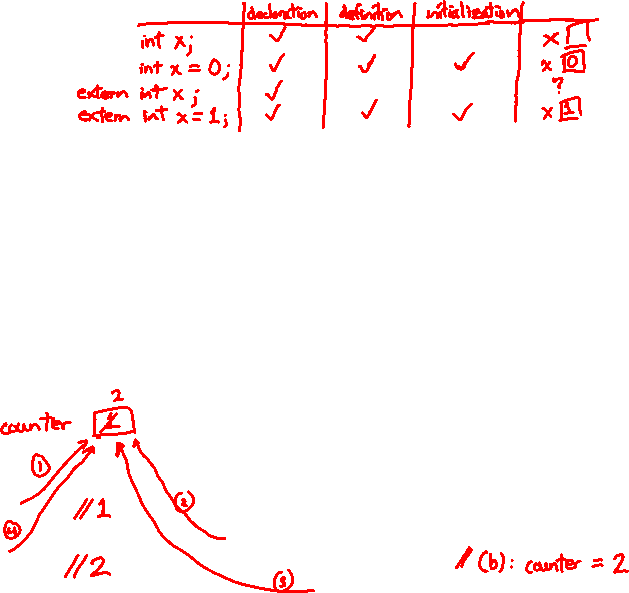 declaration definition initialization
int x; ✓ ✓ x
int x = 0; ✓ ✓ ✓ x 0
extern int x; ✓ ?
extern int x = 1; ✓ ✓ ✓ x 1
2
counter 1
①
②
//1
④
//2
③
// (b): counter = 2